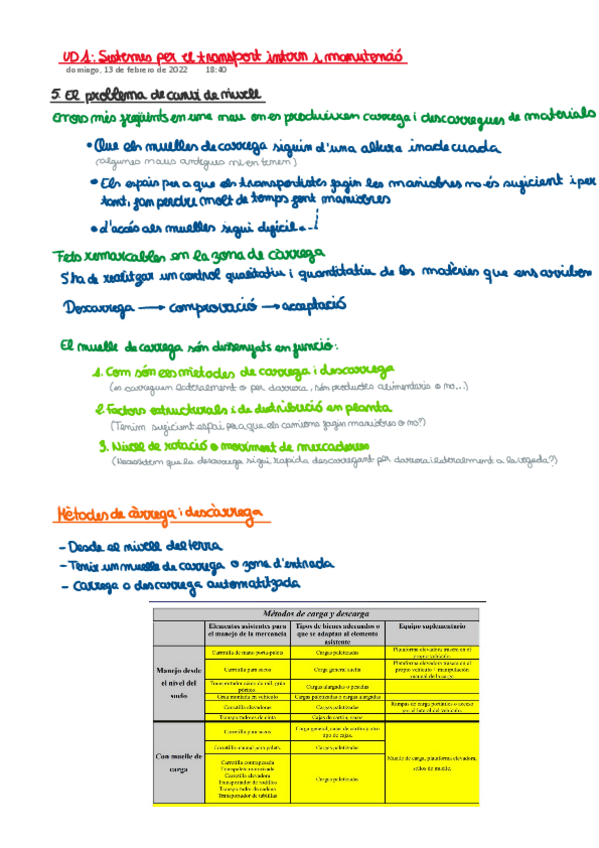 UD1: Sistemes per el transport intern i manutenció
domingo, 13 de febrero de 2022 18:40
5. El problema de canvi de nivell
Errors més freqüents en una nau on es produixen carrega i descarregues de materials
• Que els muelles de carrega siguin d'una altura inadecuada
(algunes naus antigues ni en tenen)
• Els espais per a que els transportistes fagin les maniobres no és suficient i per
tant, fan perdre molt de temps fent maniobres
• d'accés als muelles sigui difícil
Fets remarcables en la zona de càrrega
S'ha de realitzar un control qualitatiu i quantitatiu de les matèries que ens arriben
Descarrega → comprovació → acceptació
El muelle de carrega són dissenyats en funció:
1. Com són els mètodes de carrega i descarrega
(es carreguen lateralment o per darrera, són productes alimentaris o no...)
2. Factors estructurals i de distribució en planta
(Tenim suficient espai per a que els camions fagin maniobres o no?)
3. Nivell de rotació o moviment de mercaderies
(Necessitem que la descarrega sigui rapida descarregant per darrera i lateralment a la vegada?)
Mètodes de càrrega i descàrrega
- Desde el nivell del terra
- Tenir un muelle de carrega o zona d'entrada
- Carrega o descarrega automatitzada
Métodos de carga y descarga
Elementos asistentes para el manejo de la mercancía
Tipos de bienes adecuados o que se adaptan al elemento asistente
Equipo suplementario
Manejo desde el nivel del suelo
Carretilla de mano porta-palets
Cargas paletizadas
Plataforma elevadora trasera en el propio vehículo
Carretilla para sacos
Carga general suelta
Plataforma elevadora trasera en el propio vehículo + manipulación manual de la carga
Cargas alargadas o pesadas
Grúa montada en vehículo
Cargas paletizadas o cargas alargadas
Carretilla elevadora
Cargas paletizadas
Rampas de carga portátiles o acceso por el lateral del vehículo.
Transportadores de cinta
Cajas de cartón, sacos
Con muelle de carga
Carretilla para sacos
Carga general, cajas de cartón y otro tipo de cajas.
Muelle de carga, plataforma elevadora, sellos de muelle.
Carretilla manual para palets.
Cargas paletizadas
Carretilla contrapesada
Transpaleta motorizada
Carretilla elevadora
Transportador de rodillos
Transportador de cadena
Transportador de tablillas
Cargas paletizadas